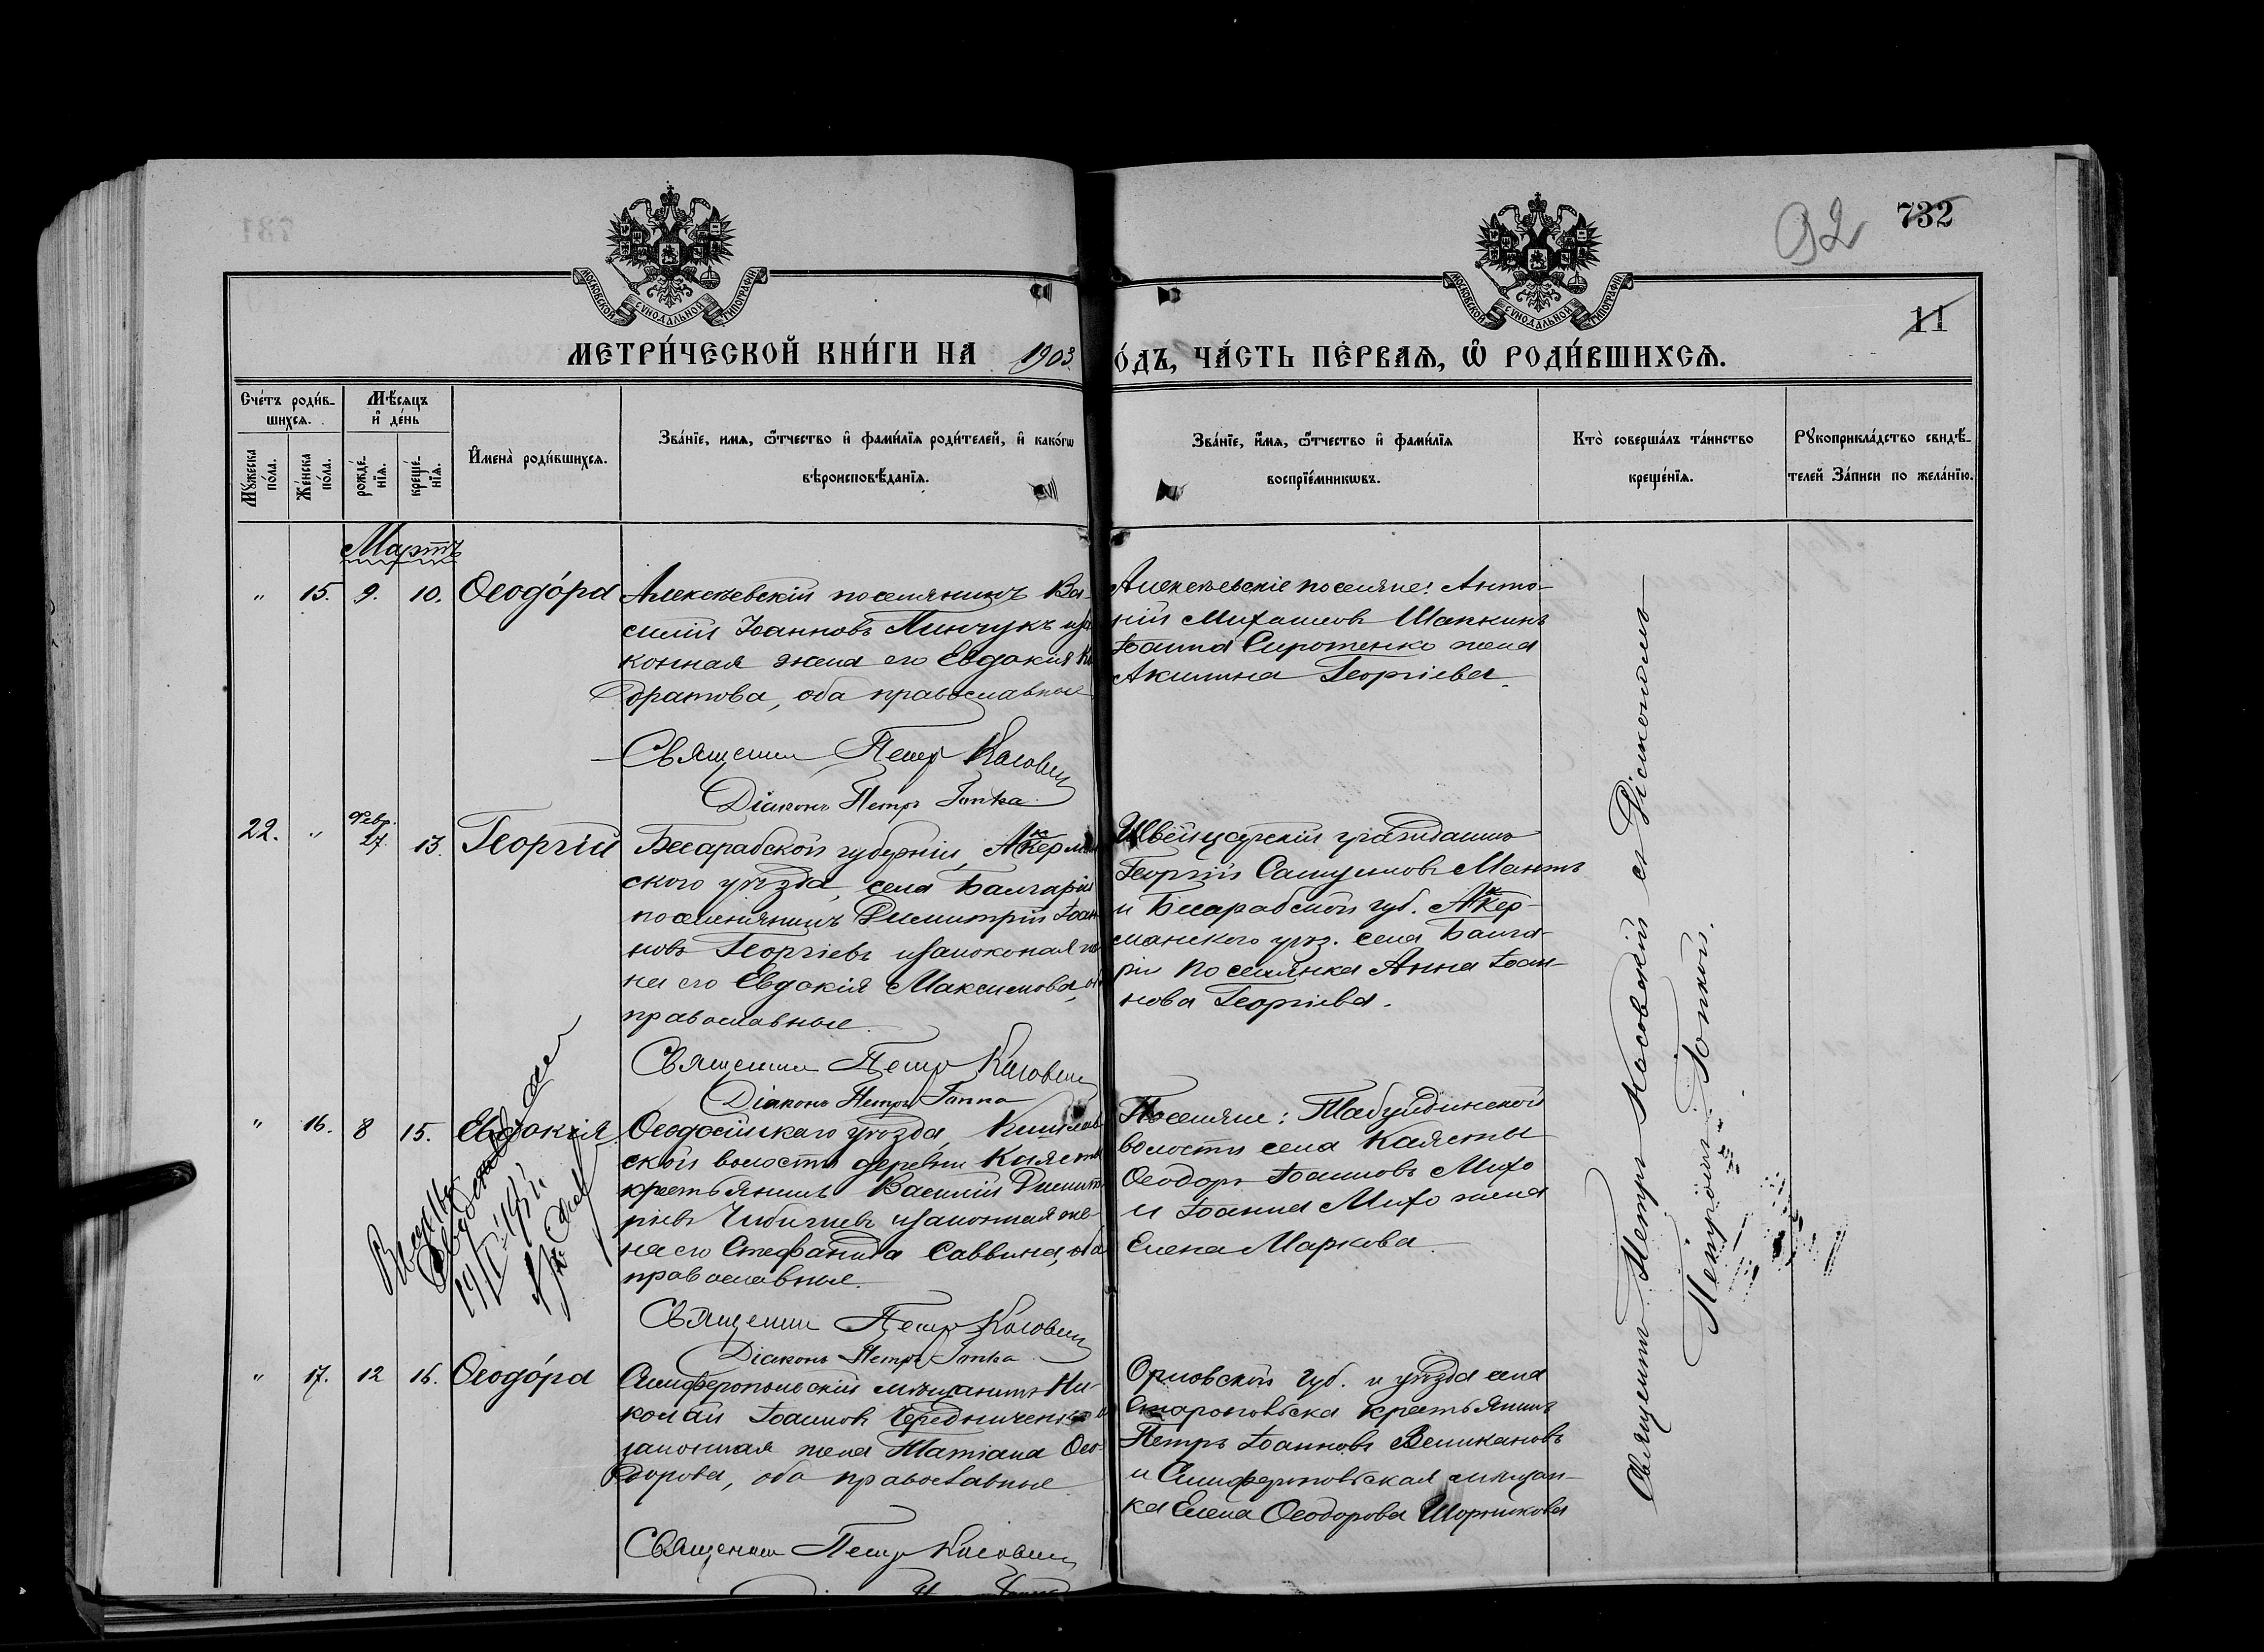 92 732
11
МОСКОВСКОЙ СѴНОДАЛЬНОЙ ТИПОГРАФІИ
МОСКОВСКОЙ СѴНОДАЛЬНОЙ ТИПОГРАФІИ
МЕТРИ́ЧЕСКОЙ КНИ́ГИ НА 1903
О́ДЪ, ЧА́СТЬ ПЕ́РВАѦ, Ѡ҆ РОДИ́ВШИХСѦ.
Сче́тъ роди́в-
шихсѧ.
Мꙋжеска по́ла.
Же́нска по́ла.
Мѣ́сѧцъ
и҆ де́нь
рожде́-
нїѧ.
креще́-
нїѧ.
И҆мена̀ роди́вшихсѧ.
Зва́нїе, имѧ, ѻ҆́тчество и҆ фами́лїѧ роди́телей, и҆ како́гѡ
вѣроисповѣ́данїѧ.
Зва́нїе, и҆́мѧ, ѻ҆́тчество и҆ фами́лїѧ
воспрїе́мникѡвъ.
Кто̀ соверша́лъ та́инство
креще́нїѧ.
Рꙋкоприкла́дство свидѣ́-
телей За́писи по жела́нїю.
Мартъ
" 15. 9. 10. Ѳеодо́ра
Алексѣевскій поселянинъ Ва-
силій Іоанновъ Пинчукъ
конная жена его Евдокія
дратова, оба православные
Священник Петр Косовский
Діаконъ Петръ Гопка
Алексѣевскіе поселяне: Анто-
ній Михаиловъ Шапкинъ
Іоанна Сиротенко жена
Акилина Георгіева.
22. " Февр. 27. 13. Георгій
Бесарабской губерніи, Аккерман
ского уѣзда, села Балгаріи
поселянинъ Димитрій Іоан
новъ Георгіевъ и законная же
на его Евдокія Максимова,
православные.
Священник Петр Косовский
Діаконъ Петръ Гопка
Швейцарскій гражданинъ
Георгій Самуиловъ Мантъ
и Бесарабской губ. Аккер-
манского уѣз. села Балга-
ріи поселянка Анна Іоан-
нова Георгіева.
" 16. 8 15. Евдокія
Ѳеодосійскаго уѣзда,
ской волости деревни
крестьянинъ Василій Димит
ріевъ и законная же-
на его Стефанида Саввина, оба
православные.
Священник Петр Косовский
Діаконъ Петръ Гопка
Поселяне: Табулдинской
волости села
Ѳеодоръ Іоанновъ Михо
и Іоанна Михо жена
Елена Маркова.
" 17. 12 16. Ѳеодо́ра
Симферопольскій мѣщанинъ Ни-
колай Іоанновъ Чередниченко и
законная жена Татіана Ѳео-
дорова, оба православные.
Священник Петр Косовский
Орловской губ. и уѣзда села
крестьянинъ
Петръ Іоанновъ Великановъ
и Симферопольская мѣщан-
ка Елена Ѳеодорова Шорникова
Священникъ Петръ Косовскій съ Діакономъ
Петромъ Гопкой.